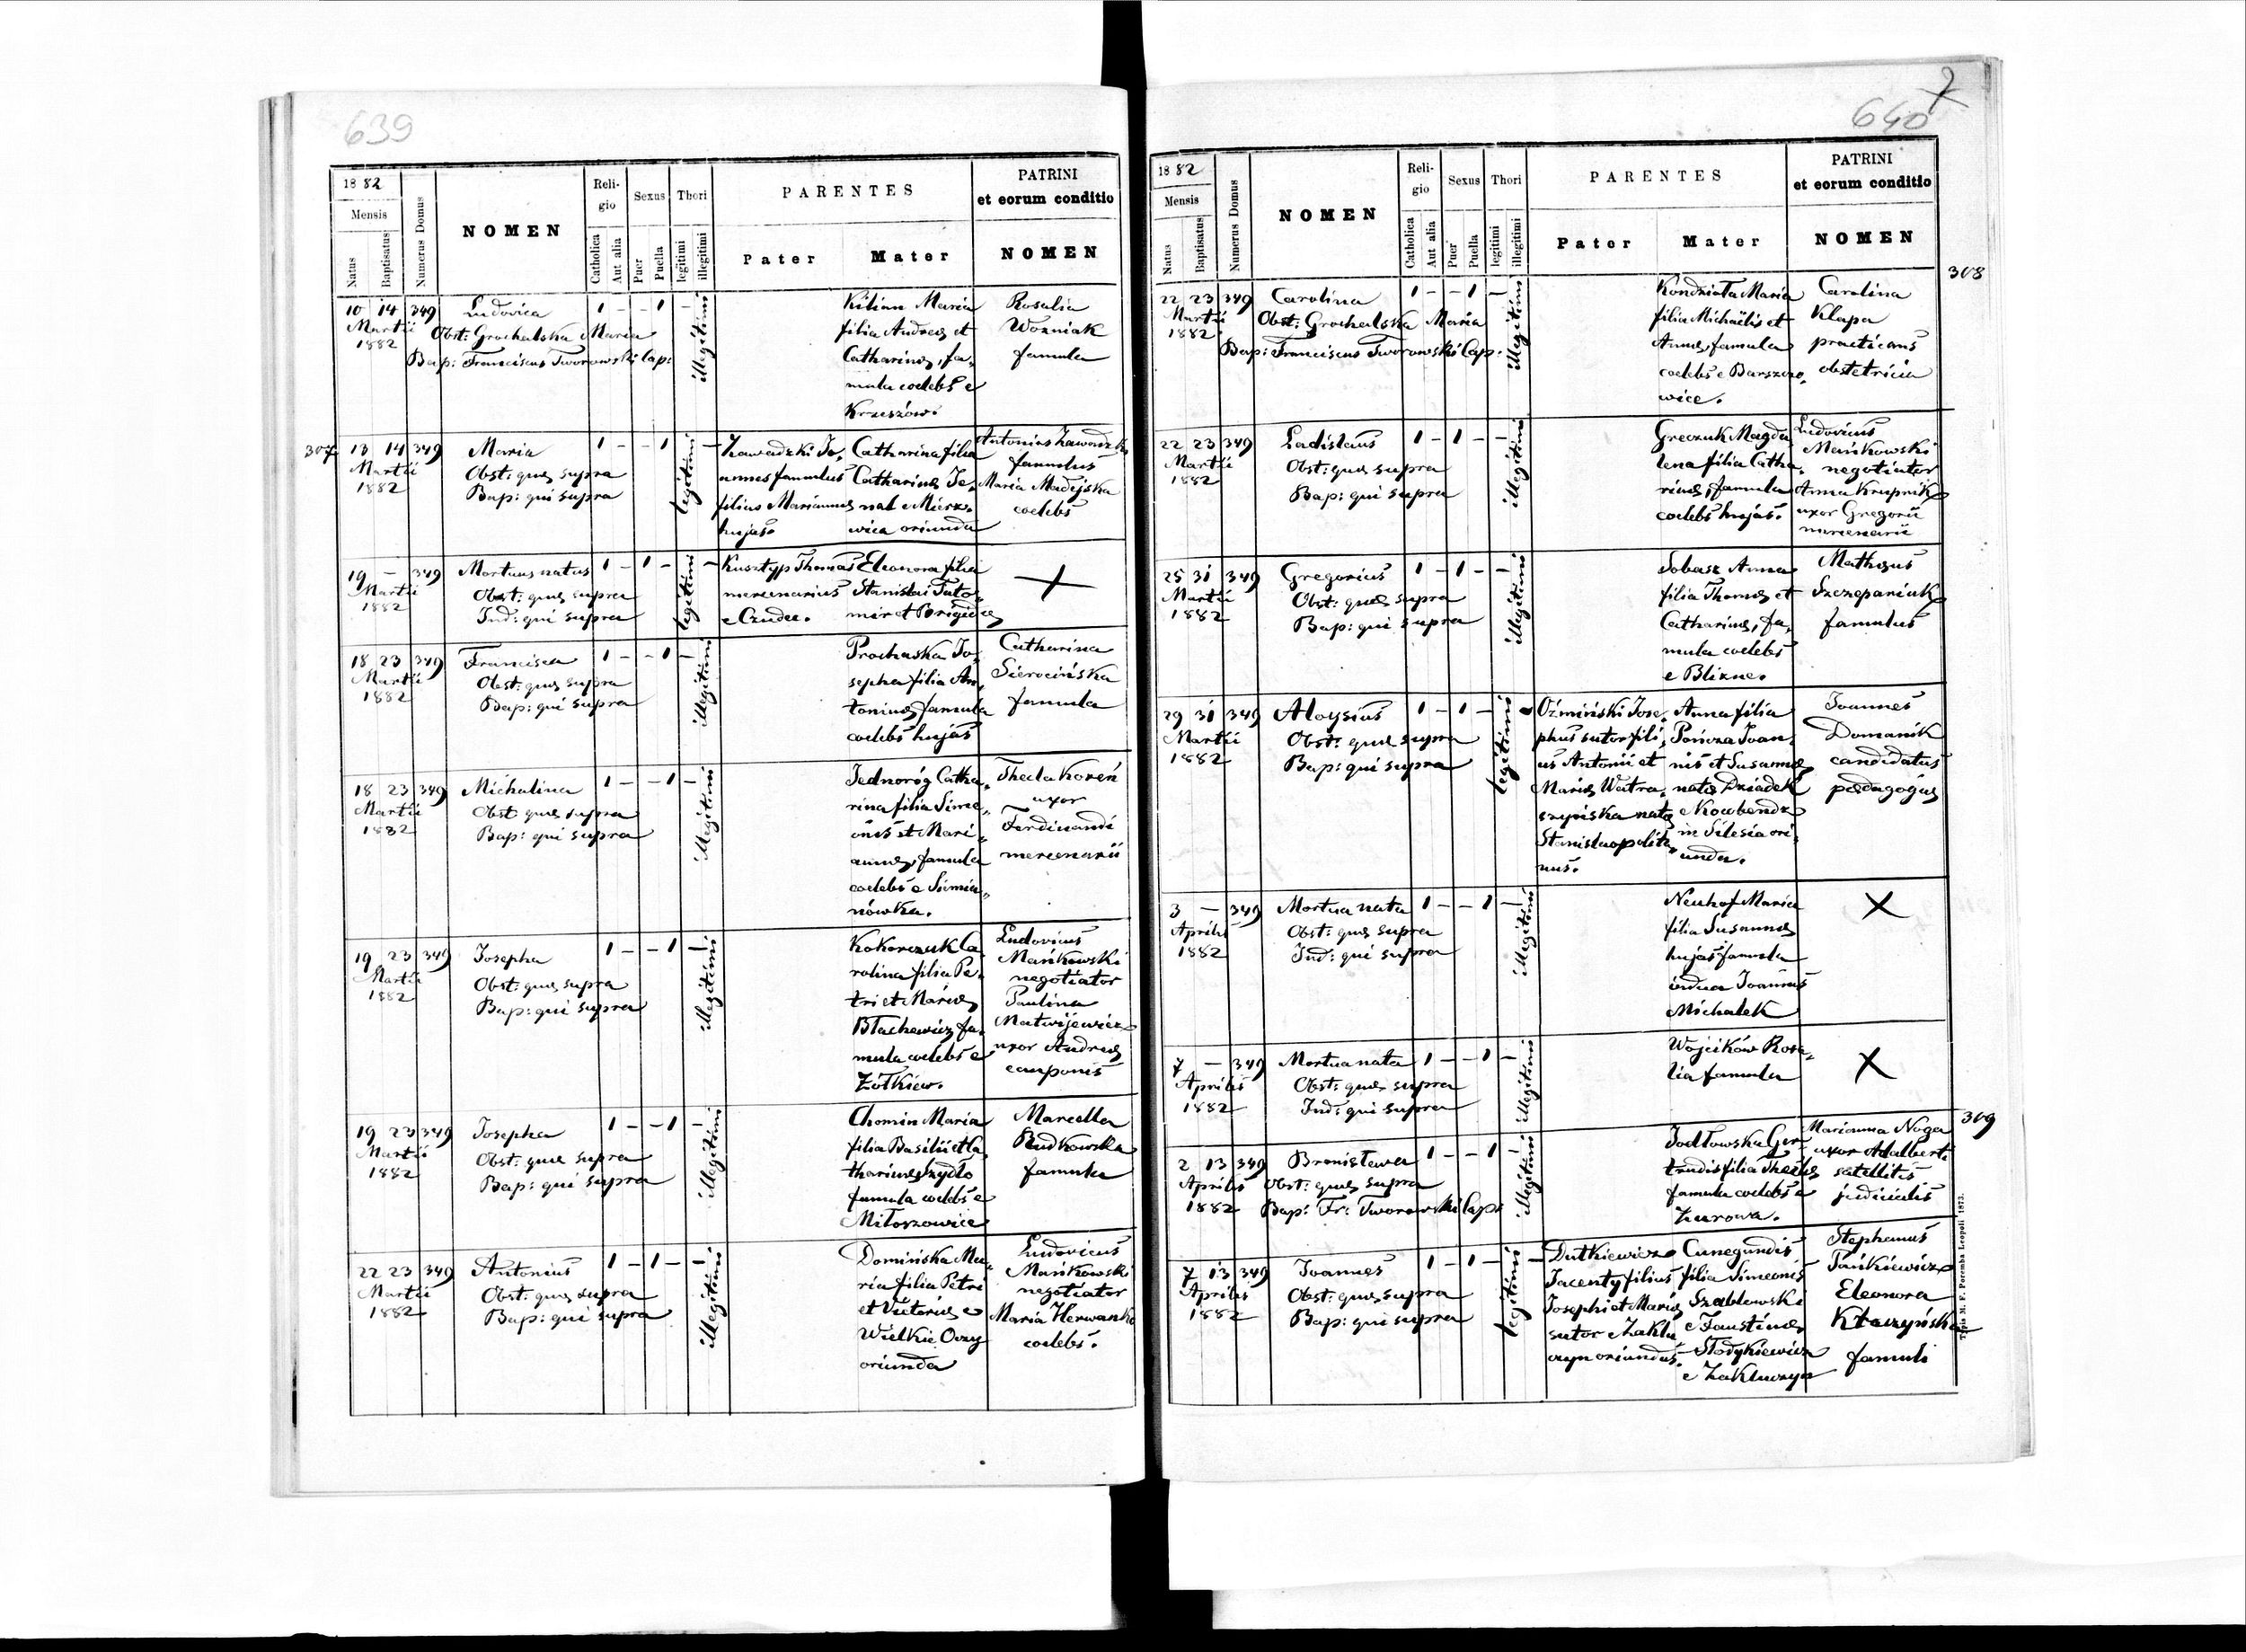 639
1882
Mensis
Natus
Baptisatus
Numerus Domus
NOMEN
Religio
Catholica
Aut alia
Sexus
Puer
Puella
Thori
legitimi
illegitimi
PARENTES
Pater
Mater
PATRINI
et eorum conditio
NOMEN
10 14 349 Ludovica 1 - - 1 -
Martii
1882
Obst: Grochalska Maria
Bap: Franciscus Tworowski Cap:
illegitimi
Kilian Maria
filia Andreæ et
Catharinæ, fa„
mula coelebs e
Krzeszów.
Rosalia
Wozniak
famula
307
13 14 349 Maria 1 - - 1 -
Martii
1882
Obst: quæ supra
Bap: qui supra
legitimi
Zawadzki Jo„
annes famulus
filius Mariannæ
hujas.
Catharina filia
Catharinæ
oriunda
Antonius
famulus
Maria Madejska
coelebs
19 - 349 Mortuus natus 1 - 1 -
Martii
1882
Obst: quæ supra
Ind: qui supra
legitimi
Kusztyp Thomas
mercenarius
e Czudec.
Eleonora filia
Stanislai
et Brigidæ
18 23 349 Francisca 1 - - 1 -
Martii
1882
Obst: quæ supra
Bap: qui supra
illegitimi
Prochaska Jo„
sepha filia An„
toninæ famula
coelebs hujas
Catharina
Sierocińska
famula
18 23 349 Michalina 1 - - 1 -
Martii
1882
Obst quæ supra
Bap: qui supra
illegitimi
Jednoróg Catha„
rina filia Sime„
onis et Mari„
annæ, famula
coelebs e Siemia„
nówka.
Thecla Koreń
uxor
Ferdinandi
mercenarii
19 23 349 Josepha 1 - - 1 -
Martii
1882
Obst: quæ supra
Bap: qui supra
illegitimi
Kokorczuk Ca
rolina filia Pe„
tri et Mariæ
Błachewicz fa„
mula coelebs e
Żółkiew.
Ludovicus
Mańkowski
negotiator
Paulina
Matwijewicz
uxor Andreæ
cauponis
19 23 349 Josepha 1 - - 1 -
Martii
1882
Obst: quæ supra
Bap: qui supra
illegitimi
Chomin Maria
filia Basilii et Ca
tharinæ Szydło
famula coelebs e
Miłoszowice
Marcella
Rudkowska
famula
22 23 349 Antonius 1 - 1 - -
Martii
1882
Obst: quæ supra
Bap: qui supra
illegitimi
Domińska Ma„
ria filia Petri
et Victoriæ e
Wielkie Oczy
oriunda
Ludovicus
Mańkowski
negotiator
Maria
coelebs.
640
1882
Mensis
Natus
Baptisatus
Numerus Domus
NOMEN
Religio
Catholica
Aut alia
Sexus
Puer
Puella
Thori
legitimi
illegitimi
PARENTES
Pater
Mater
PATRINI
et eorum conditio
NOMEN
308
22 23 349 Carolina 1 - - 1 -
Martii
1882
Obst: Grochalska Maria
Bap: Franciscus Tworowski Cap.
illegitimi
Kondziała Maria
filia Michaëlis et
Annæ, famula
coelebs e Barszczo„
wice.
Carolina
Klapa
practicans
obstetricia
22 23 349 Ladislaus 1 - 1 - -
Martii
1882
Obst: quæ supra
Bap: qui supra
illegitimi
Greczuk Magda
lena filia Catha„
rinæ, famula
coelebs hujas.
Ludovicus
Mańkowski
negotiator
Anna Krupnik
uxor Gregorii
mercenarii
25 31 349 Gregorius 1 - 1 - -
Martii
1882
Obst: quæ supra
Bap: qui supra
illegitimi
Sobasz Anna
filia Thomæ et
Catharinæ, fa„
mula coelebs
e Blizne.
Matheus
Szczepaniuk
famulus
29 31 349 Aloysius 1 - 1 -
Martii
1882
Obst: quæ supra
Bap: qui supra
legitimi
Oźmiński Jose„
phus sutor fili„
us Antonii et
Mariæ Watra„
szyńska natæ
Stanislaopolita„
nus.
Anna filia
Pańcza Joan„
nis et Susannæ
natæ Dziadek
e
in Silesia ori„
unda.
Joannes
Domanik
candidatus
pædagogiæ
3 - 349 Mortua nata 1 - - 1 -
Aprilis
1882
Obst: quæ supra
Ind: qui supra
illegitimi
Neuhof Maria
filia Susannæ
hujas famula
vidua Joannis
Michalek
7 - 349 Mortua nata 1 - - 1 -
Aprilis
1882
Obst: quæ supra
Ind: qui supra
illegitimi
Wojcików Rosa„
lia famula
309
2 13 349 Bronisława 1 - - 1 -
Aprilis
1882
Obst: quæ supra
Bap: Fr: Tworowski Cap:
illegitimi
Jodłowska Ger„
trudis filia Theclæ
famula coelebs e
Żurowa.
Marianna Noga
uxor Adalberti
satellitis
judicialis
7 13 349 Joannes 1 - 1 - -
Aprilis
1882
Obst: quæ supra
Bap: qui supra
legitimi
Dutkiewicz
Jacenty filius
Josephi et Mariæ
sutor e Zaklu„
czyn oriundus.
Cunegundis
filia Simeonis
Szablowski
e Faustinæ
Słodykiewicz
e Zakluczyn
Stephanus
Pańkiewicz
Eleonora
Kłaczyńska
famuli
Typis M. F. Poremba Leopoli 1873.